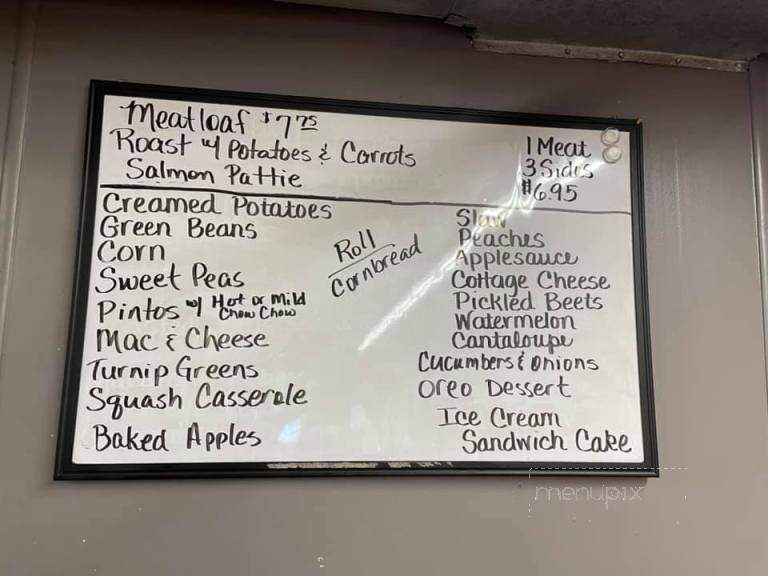 Meatloaf $7.75
Roast w/ Potatoes & Carrots
Salmon Pattie
1 Meat
3 Sides
$6.95
Creamed Potatoes
Green Beans
Corn
Sweet Peas
Pintos w/ Hot or Mild
Chow Chow
Mac & Cheese
Turnip Greens
Squash Casserole
Baked Apples
Roll
Cornbread
Slaw
Peaches
Applesauce
Cottage Cheese
Pickled Beets
Watermelon
Cantaloupe
Cucumbers & Onions
Oreo Dessert
Ice Cream
Sandwich Cake
menupix